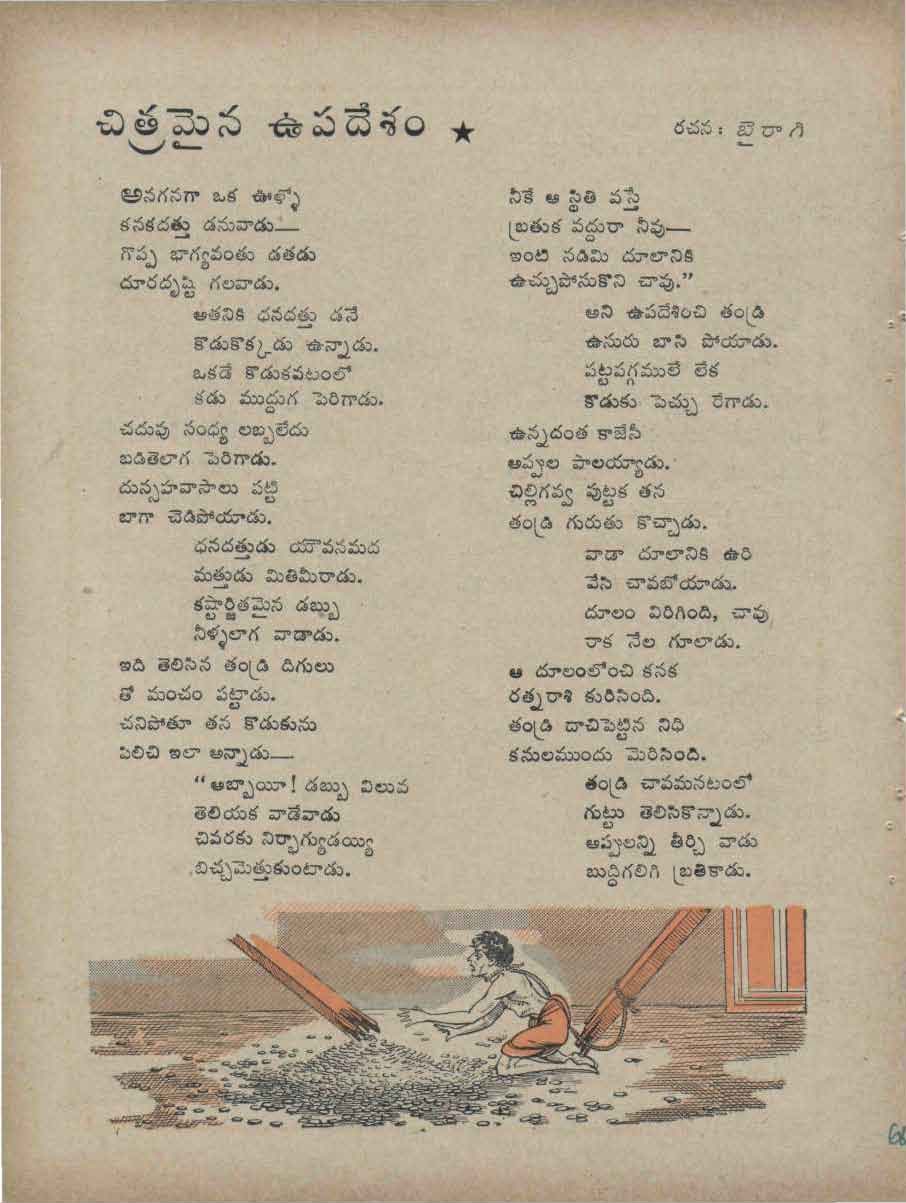 చిత్రమైన ఉపదేశం ★
రచన: బైరాగి
అనగనగా ఒక ఊళ్ళో
కనకదత్తు డనువాడు—
గొప్ప భాగ్యవంతు డతడు
దూరదృష్టి గలవాడు.
అతనికి ధనదత్తు డనే
కొడుకొక్కడు ఉన్నాడు.
ఒకడే కొడుకవటంలో
కడు ముద్దుగ పెరిగాడు.
చదువు సంధ్య లబ్బలేదు
బడితెలాగ పెరిగాడు.
దున్సహవాసాలు పట్టి
బాగా చెడిపోయాడు.
ధనదత్తుడు యౌవనమద
మత్తుడు మితిమీరాడు.
కష్టార్జితమైన డబ్బు
నీళ్ళలాగ వాడాడు.
ఇది తెలిసిన తండ్రి దిగులు
తో మంచం పట్టాడు.
చనిపోతూ తన కొడుకును
పిలిచి ఇలా అన్నాడు—
“అబ్బాయీ! డబ్బు విలువ
తెలియక వాడేవాడు
చివరకు నిర్భాగ్యుడయ్యి
బిచ్చమెత్తుకుంటాడు.
నీకే ఆ స్థితి వస్తే
బ్రతుక వద్దురా నీవు—
ఇంటి నడిమి దూలానికి
ఉచ్చుపోసుకొని చావు.”
అని ఉపదేశించి తండ్రి
ఉసురు బాసి పోయాడు.
పట్టపగ్గములే లేక
కొడుకు పెచ్చు రేగాడు.
ఉన్నదంత కాజేసి
అప్పుల పాలయ్యాడు.
చిల్లిగవ్వ పుట్టక తన
తండ్రి గురుతు కొచ్చాడు.
వాడా దూలానికి ఉరి
వేసి చావబోయాడు.
దూలం విరిగింది, చావు
రాక నేల గూలాడు.
ఆ దూలంలోంచి కనక
రత్నరాశి కురిసింది.
తండ్రి దాచిపెట్టిన నిధి
కనులముందు మెరిసింది.
తండ్రి చావమనటంలో
గుట్టు తెలిసికొన్నాడు.
అప్పులన్ని తీర్చి వాడు
బుద్ధిగలిగి బ్రతికాడు.
68